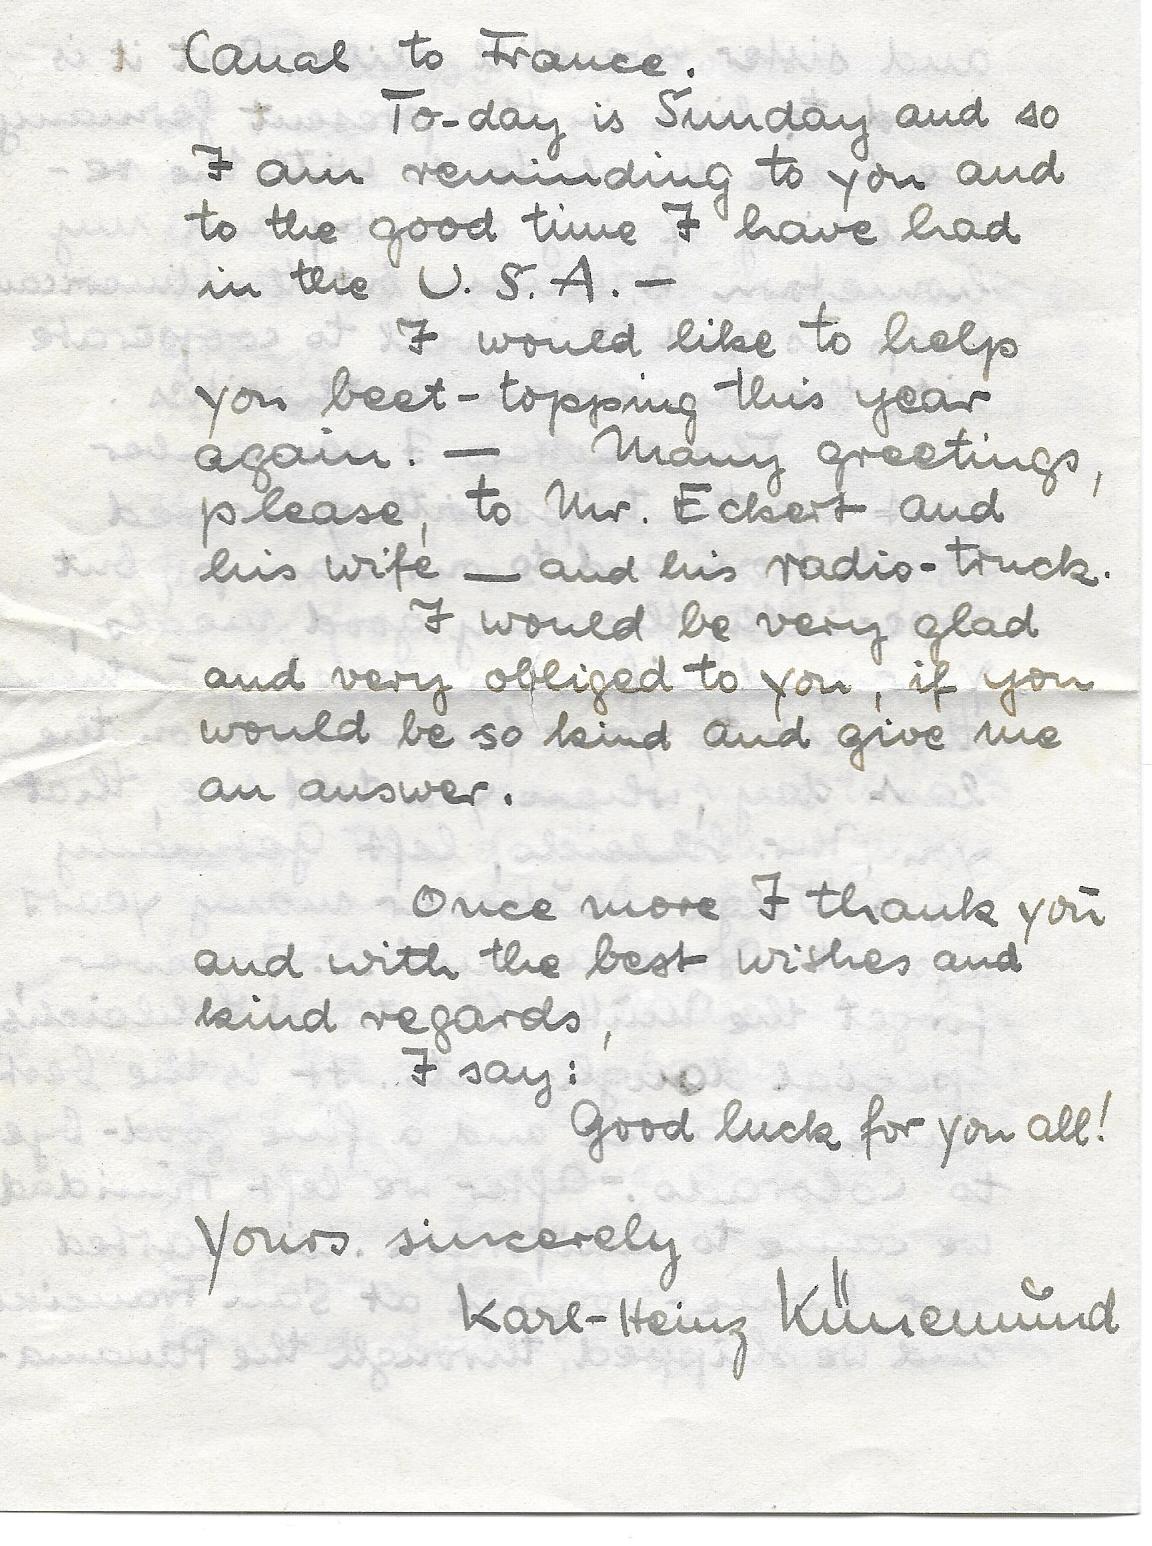 Canal to France.
To-day is Sunday and so
I am reminding to you and
to the good time I have had
in the U.S.A. —
I would like to help
you beet-topping this year
again. — Many greetings,
please, to Mr. Eckert and
his wife — and his radio-truck.
I would be very glad
and very obliged to you, if you
would be so kind and give me
an answer.
Once more I thank you
and with the best wishes and
kind regards,
I say:
Good luck for you all!
Yours sincerely
Karl-Heinz Künemund